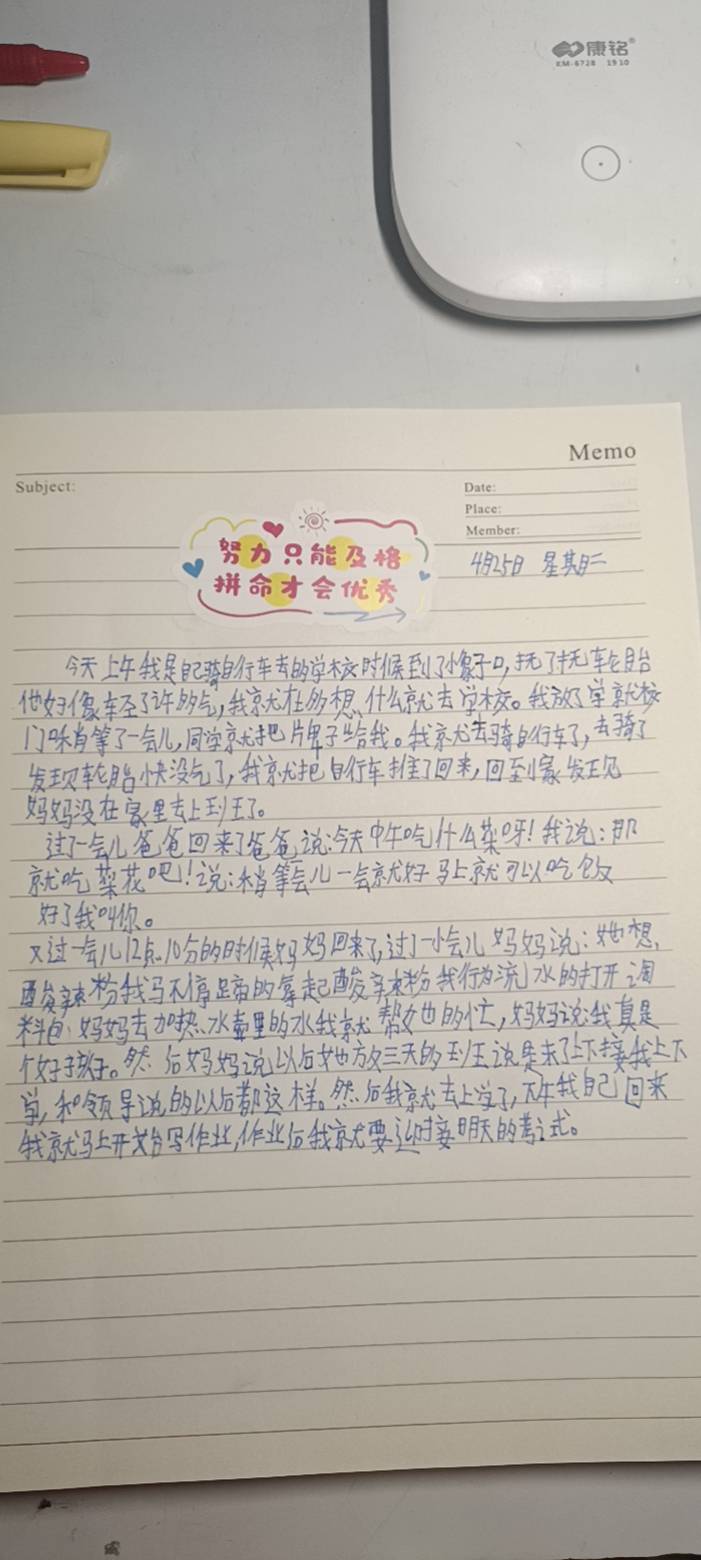 康铭®
KM-6728 1910
Memo
Subject:
Date:
Place:
Member:
努力只能及格
拼命才会优秀
4月25日 星期二
今天上午我是自己骑自行车去的学校时候到了小象子口,抚了抚车轮胎
他好像车至了许多的气,我就在多想、什么就去学校。我放了学就校
门口稍等了一会儿,同学就把片牌子给我。我就去骑自行车了,去骑了
发现轮胎快没气了,我就把自行车推了回来,回到家发现
妈妈没在家里去上班了。
过了一会儿爸爸回来了爸爸说:今天中午吃什么菜呀!我说:那
就吃菜花吧!说:稍等会儿一会就好马上就可以吃饭
好了我叫你。
又过一会儿12点10分的时候妈妈回来了,过了一小会儿妈妈说:她想,
酸辣粉我马不停蹄的拿起酸辣粉我行为流水的打开调
料包,妈妈去加热水壶里的水我就帮她的忙,妈妈说:我真是
个好孩子。然后妈妈说以后她方三天的班说是来了上下接我上下
学,和领导说的以后都这样。然后我就去上学了,下午我自己回来
我就马上开始写作业,作业后我就要迎接明天的考试。